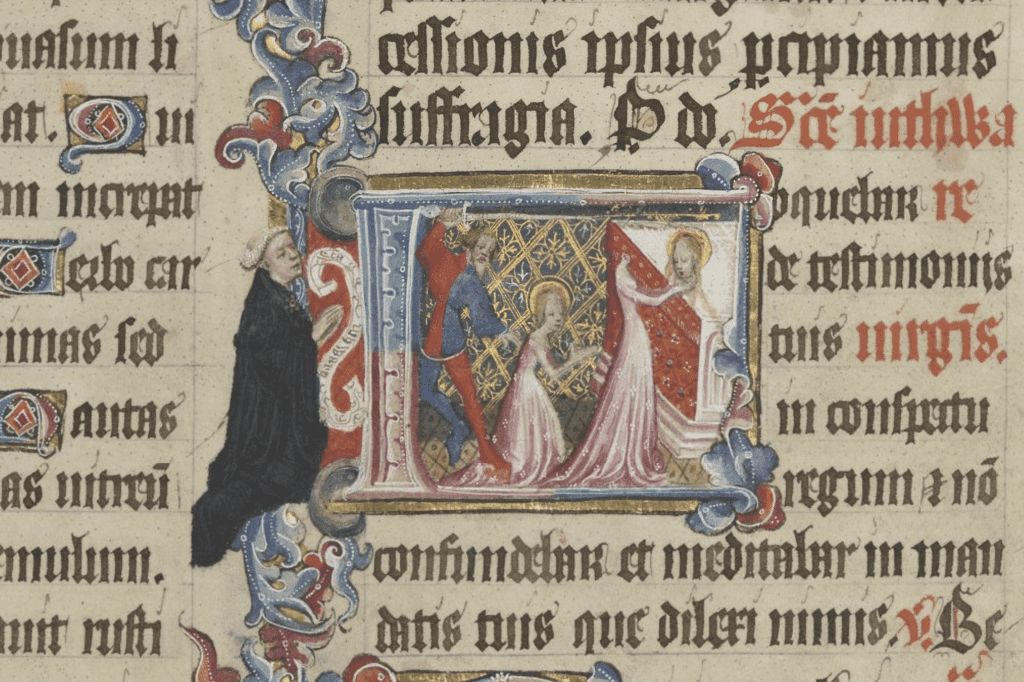 uasum li
at. Qui
am increpat
exlv car
nimas sed
autas
as introeū
emulum.
auit rusti
cessionis ipsius p̱cipiamus
suffragia. P do. Scē iuthwa
Loquebar re
de testimoniis
tuis uirg̅is.
in conspectu
regum ⁊ nō
confundebar et meditabar in man
datis tuis que dilexi nimis. v. Be